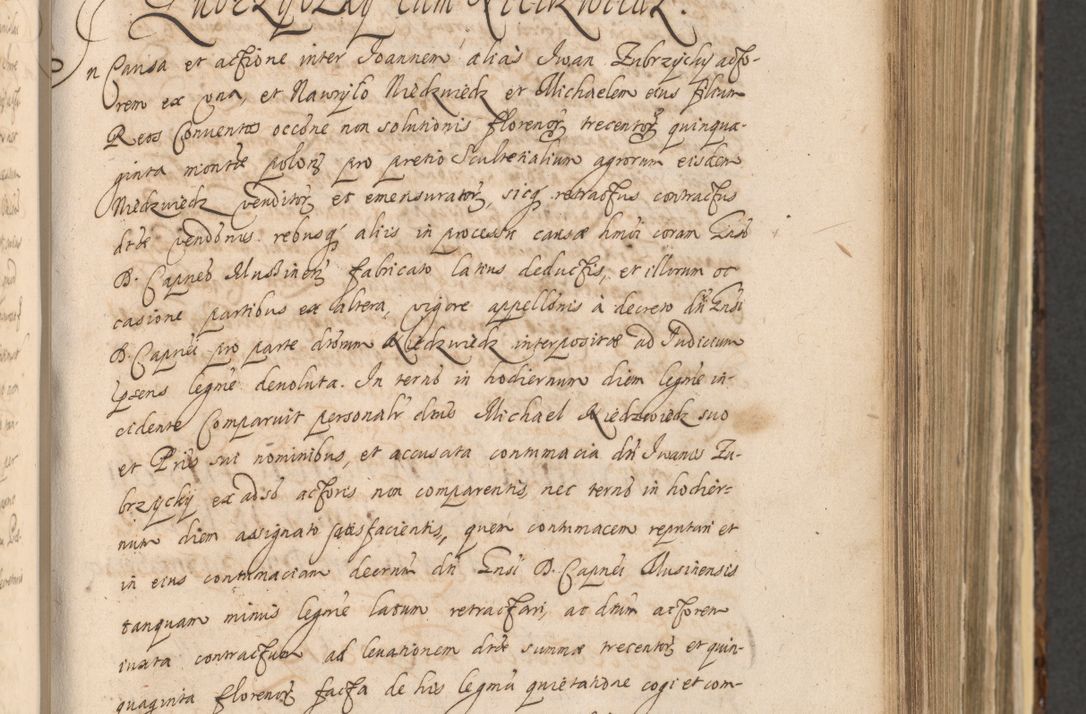 Zubrzyczky cum Niedzwiedz.
In Causa et actione inter Joannem alias Iwan Zubrzycky acto-
rem ex una, et Nawrylo Niedzwiedz et Michaelem eius filium
Reos Conventos occone non solutionis florenor trecentor quinqua-
ginta monte polon pro pretio Scultetialium agrorum eisdem
Niedzwiedz venditor et emensurator, sicq retractus contractus
dcte vendonis rebusq aliis in processu causæ hmoi coram Gnso
D. Capneo Mussinen fabricato latius deductis, et illorum oc
casione partibus ex altera, vigore appellonis à decreto dni Gnsi
D. Capnei pro parte dictorum Niedzwiedz interpositæ ad Judicium
ipsens legme devoluta. In termo in hodiernum diem legme in-
cidente Comparuit personalr dnus Michael Niedzwiedz suo
et Pris sui nominibus, et accusata contumacia dni Iwanis Zu-
brzycky ex adso actoris non comparentis, nec termo in hodier-
num diem assignato satisfacientis, quem contumacem reputari et
in eius contumaciam decrum dni Gnsi D. Capnei Musinensis
tanquam minus legme latum retractari, ac dnum actorem
iuxta contractum ad levationem dcte summæ trecentor et quin-
quaginta florenor facta de his legma quietatione cogi et com-